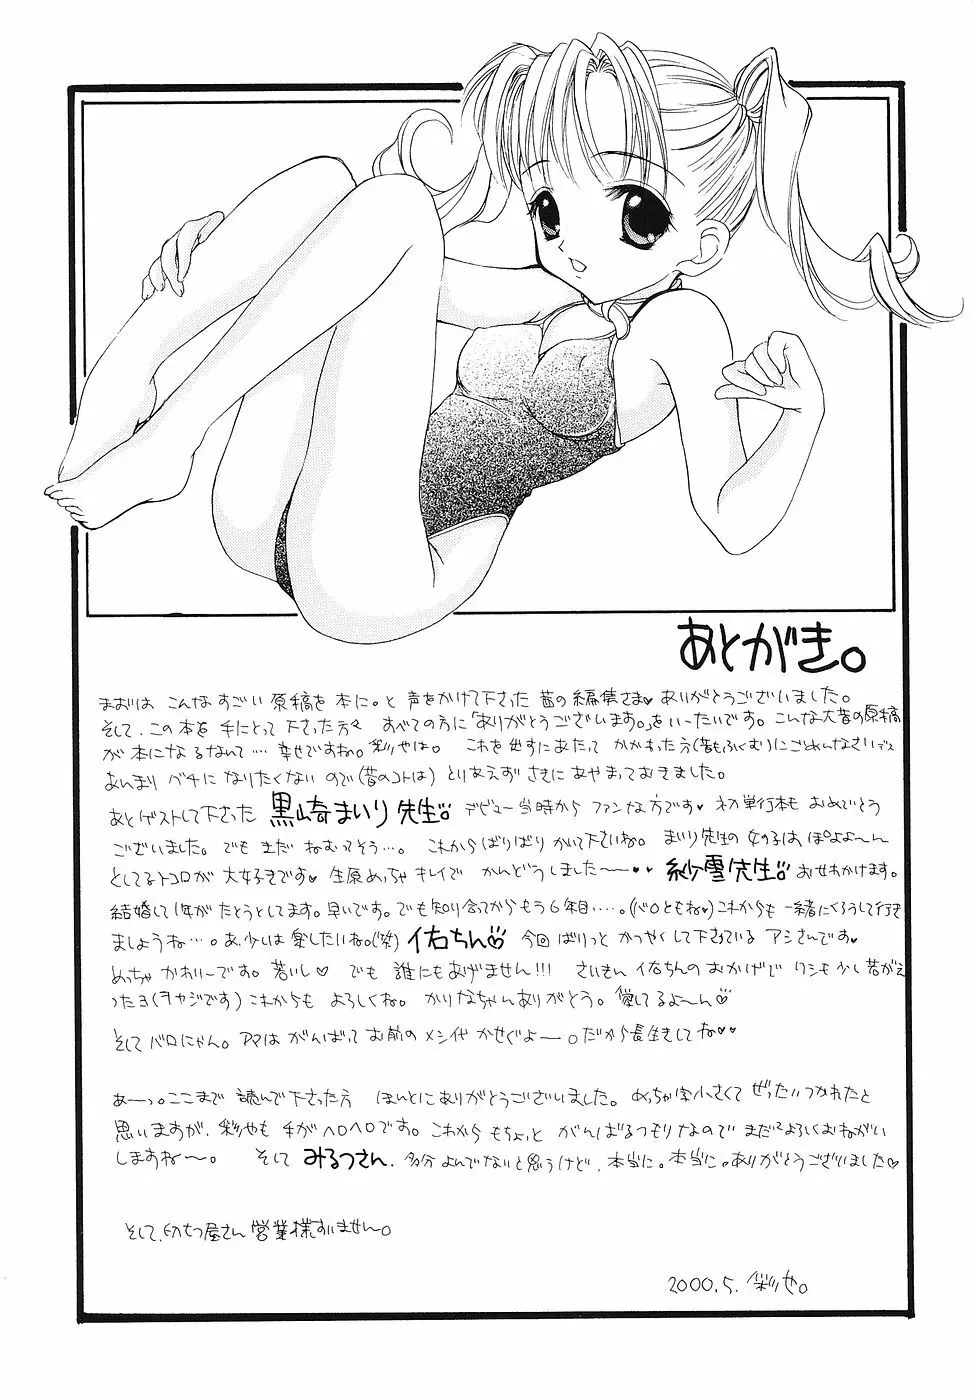 あとがき。
まずは こんなすごい原稿を本に。と 声をかけて下さった 茜の編集さま♥ ありがとうございました。
そして、この本を手にとって下さった方々 すべての方に「ありがとうございます。」をいーたいです。こんな大昔の原稿
が本になるなんて… 幸せですね。彩やは。 これを出すにあたって かかわった方(昔もふくむ)にごめんなさいデス
あんまり バチに なりたくない ので(昔のコトは) とりあえず さきに あやまっておきました。
あとゲストして下さった 黒崎まいり先生。 デビュー当時から ファンな方です♥ 初単行本も おめでとう
ございました。でも まだ ねむってそう…。 これからばりばり かいて下さいね。 まいり先生の 女の子は、ぽよよ〜ん
としてるトコロが 大好きです♥ 生原めっちゃ キレイで かんどうしました〜♥♥ 紗雪先生 おせわかけます。
結婚して1年がたとうとしてます。早いです。でも知り合ってからもう6年目……。(バロともね♥)これからも 一緒にくろうして行き
ましょうね…。あ、少しは楽したいね。(笑) 佑ちん♡ 今回 ばりっと かつやくして下さっている アシさんです♥
めっちゃ かわいーです。若いし♡ でも 誰にもあげません!!! さいきん 佑ちんの おかげで ワシも少し若がえ
ったヨ(ヲヤジです) これからも よろしくね。 かりなちゃんありがとう。愛してるよ〜ん♡
そして バロにゃん。アマは がんばって お前の メシ代 かせぐよー。だから長生きしてね♥♥
あーっ。ここまで 読んで下さった方 ほんとにありがとうございました。めっちゃ字小さくて ぜったいつかれたと
思いますが、彩やも 手が ヘロヘロです。これから もちょっと がんばるつもりなので まだまだよろしくおねがい
しますね〜。 そして みるつさん、多分 よんでないと思うけど、本当に。本当に。ありがとうございました♡
そして、屋さん 営業様すいません。
2000.5. 彩や。